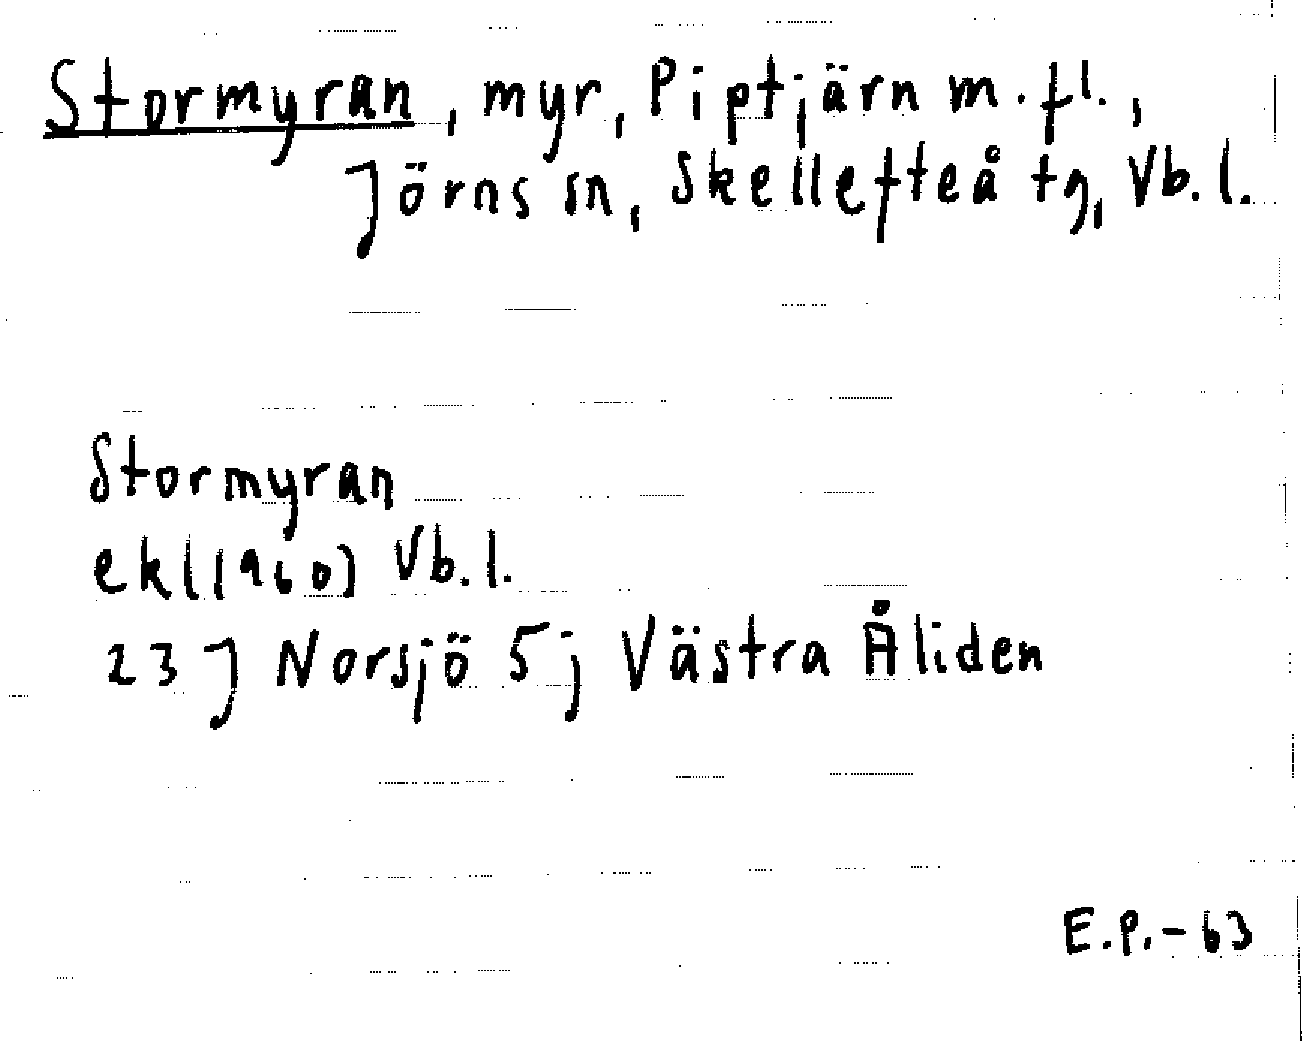 Stormyran, myr, Piptjärn m.fl.,
Jörns sn, Skellefteå tg, Vb.l.
Stormyran
ekl(1960) Vb.l.
23J Norsjö 5j Västra Åliden
E.P.-63